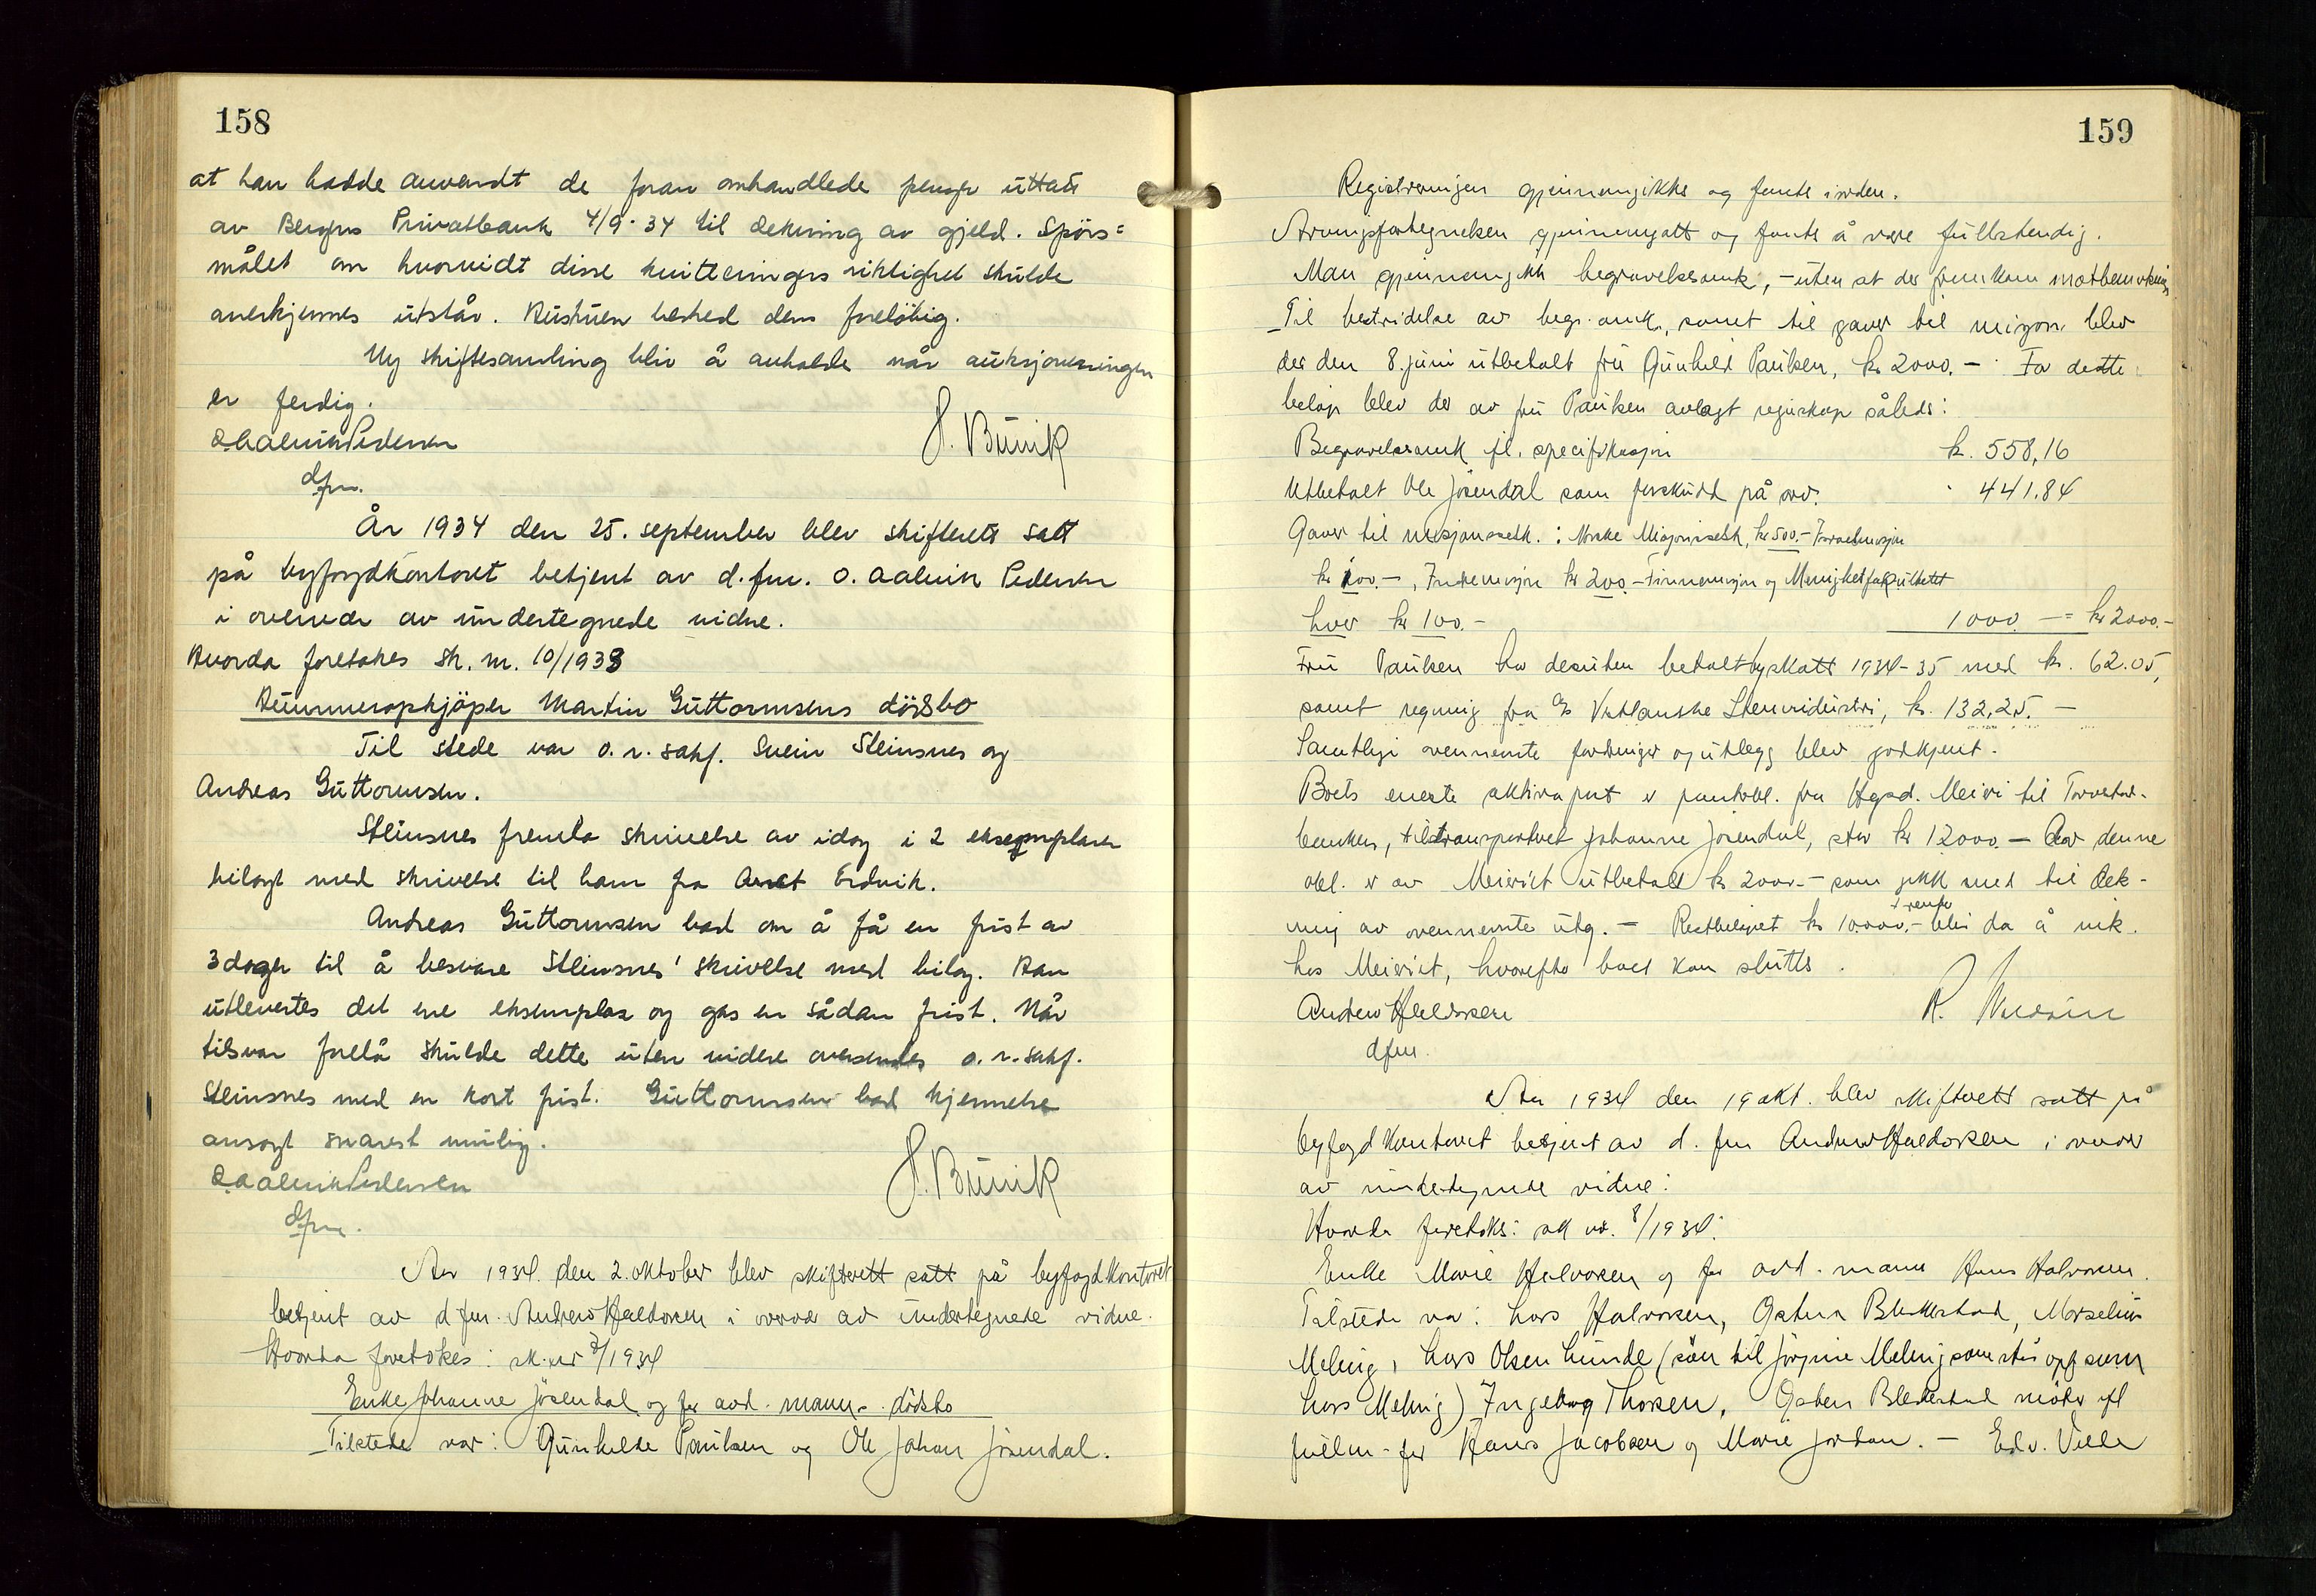 158
at han hadde anvendt de foran omhandlede penger uttatt
av Bergens Privatbank 4/9-34 til dekning av gjeld. Spørs=
målet om hvorvidt disse kvitteringers riktighet skulde
anerkjennes utstår. Hushuen beherd dem foreløbig.
Ny skiftesamling blir å anholde når auksjonsningen
er ferdig.
O. Aalvik Pedersen
dfm.
S. Bünik
År 1934 den 25. september blev skifterett satt
på byfogdkontoret betjent av d.fm. O. Aalvik Pedersen
i overvær av undertegnede vidne.
Hvorda foretokes sk. nr. 10/1933
Hummeropkjøper Martin Guttormsens dødsbo
Til stede var o.r.sakf. Svein Steinsnes og
Andreas Guttormsen.
Steinsnes fremla skrivelse av idag i 2 eksemplarer
bilagt med skrivelse til ham fra Arnt Erdvik.
Andreas Guttormsen bad om å få en frist av
3 dager til å besvare Steinsnes' skrivelse med bilag. Han
utlevertes det ene eksemplar og gas en sådan frist. Når
tilsvar forelå skulde dette uten videre oversendes o.r.sakf.
Steinsnes med en kort frist. Guttormsen bad kjennelse
avsagt snarest mulig.
O. Aalvik Pedersen
dfm.
S. Bünik
Aar 1934 den 2. oktober blev skifterett satt på byfogdkontoret
betjent av d.fm. Andrew Haldorsen i overvær av undertegnede vidne.
Hvorda foretokes: sk.nr 3/1934
Enke Johanne Jøsendal og før avd. manns dødsbo
Tilstede var: Gunhilde Paulsen og Ole Johan Jøsendal.
159
Registreringen gjennemgikks og fantes iorden.
Arvingsfortegnelsen gjennemgått og fantes å være fullstendig.
Man gjennemgikk begravelsesomk., - uten at der fremkom motbemerkning
Til bestridelse av begr. omk., samt til gaver til misjon. blev
der den 8. juni utbetalt fru Gunhild Paulsen, kr. 2000.- For dette
beløp blev der av fru Paulsen avlagt regnskap således:
Begravelsesomk. ifl. specifikasjon kr. 558,16
Utbetalt Ole Jøsendal som forskudd på arv. 441.84
Gaver til misjonsselsk.: Norske Misjonsselsk, kr 500.- Israelmisjon
kr 100.-, Indremisjon kr 200.- Finnemisjon og Menighetsfakultetet
hver kr 100.- 1000.- = kr 2000.-
Fru Paulsen har desuten betalt byskatt 1934-35 med kr. 62.05,
samt regning fra A/S Vestlanske Stenindustri, kr. 132,25. -
Samtlige ovennevnte fordringer og utlegg blev godkjent.
Boets eneste aktivapost er pantobl. fra Hgsd. Meieri til Torvestad-
banken, tiltransportert Johanne Jøsendal, stor kr 12000.- Av denne
obl. er av Meieriet utbetalt kr 2000.- som gikk med til dek-
ning av ovennevnte utg. - Restbeløpet kr 10.000.- + rente blir da å ink.
hos Meieriet, hvorefter boet kan sluttes.
Andrew Haldorsen
dfm.
Aar 1934 den 19 okt. blev skifterett satt på
byfogdkontoret betjent av d. fm Andrew Haldorsen i overvær
av undertegnede vidne:
Hvorda foretoks: sk nr. 8/1934:
Enke Marie Halvorsen og før avd. mann Hans Halvorsen.
Tilstede var: Lars Halvorsen, Østen Blikkestad, Marselius
Meling, Lars Olsen Lunde (sønn til Jørgine Meling som står opf. som
Lars Meling) Ingeborg Thorsen, Østen Blikkestad møder ifl
fullm. for Hans Jacobsen og Marie Jordan. - Edv. Velle